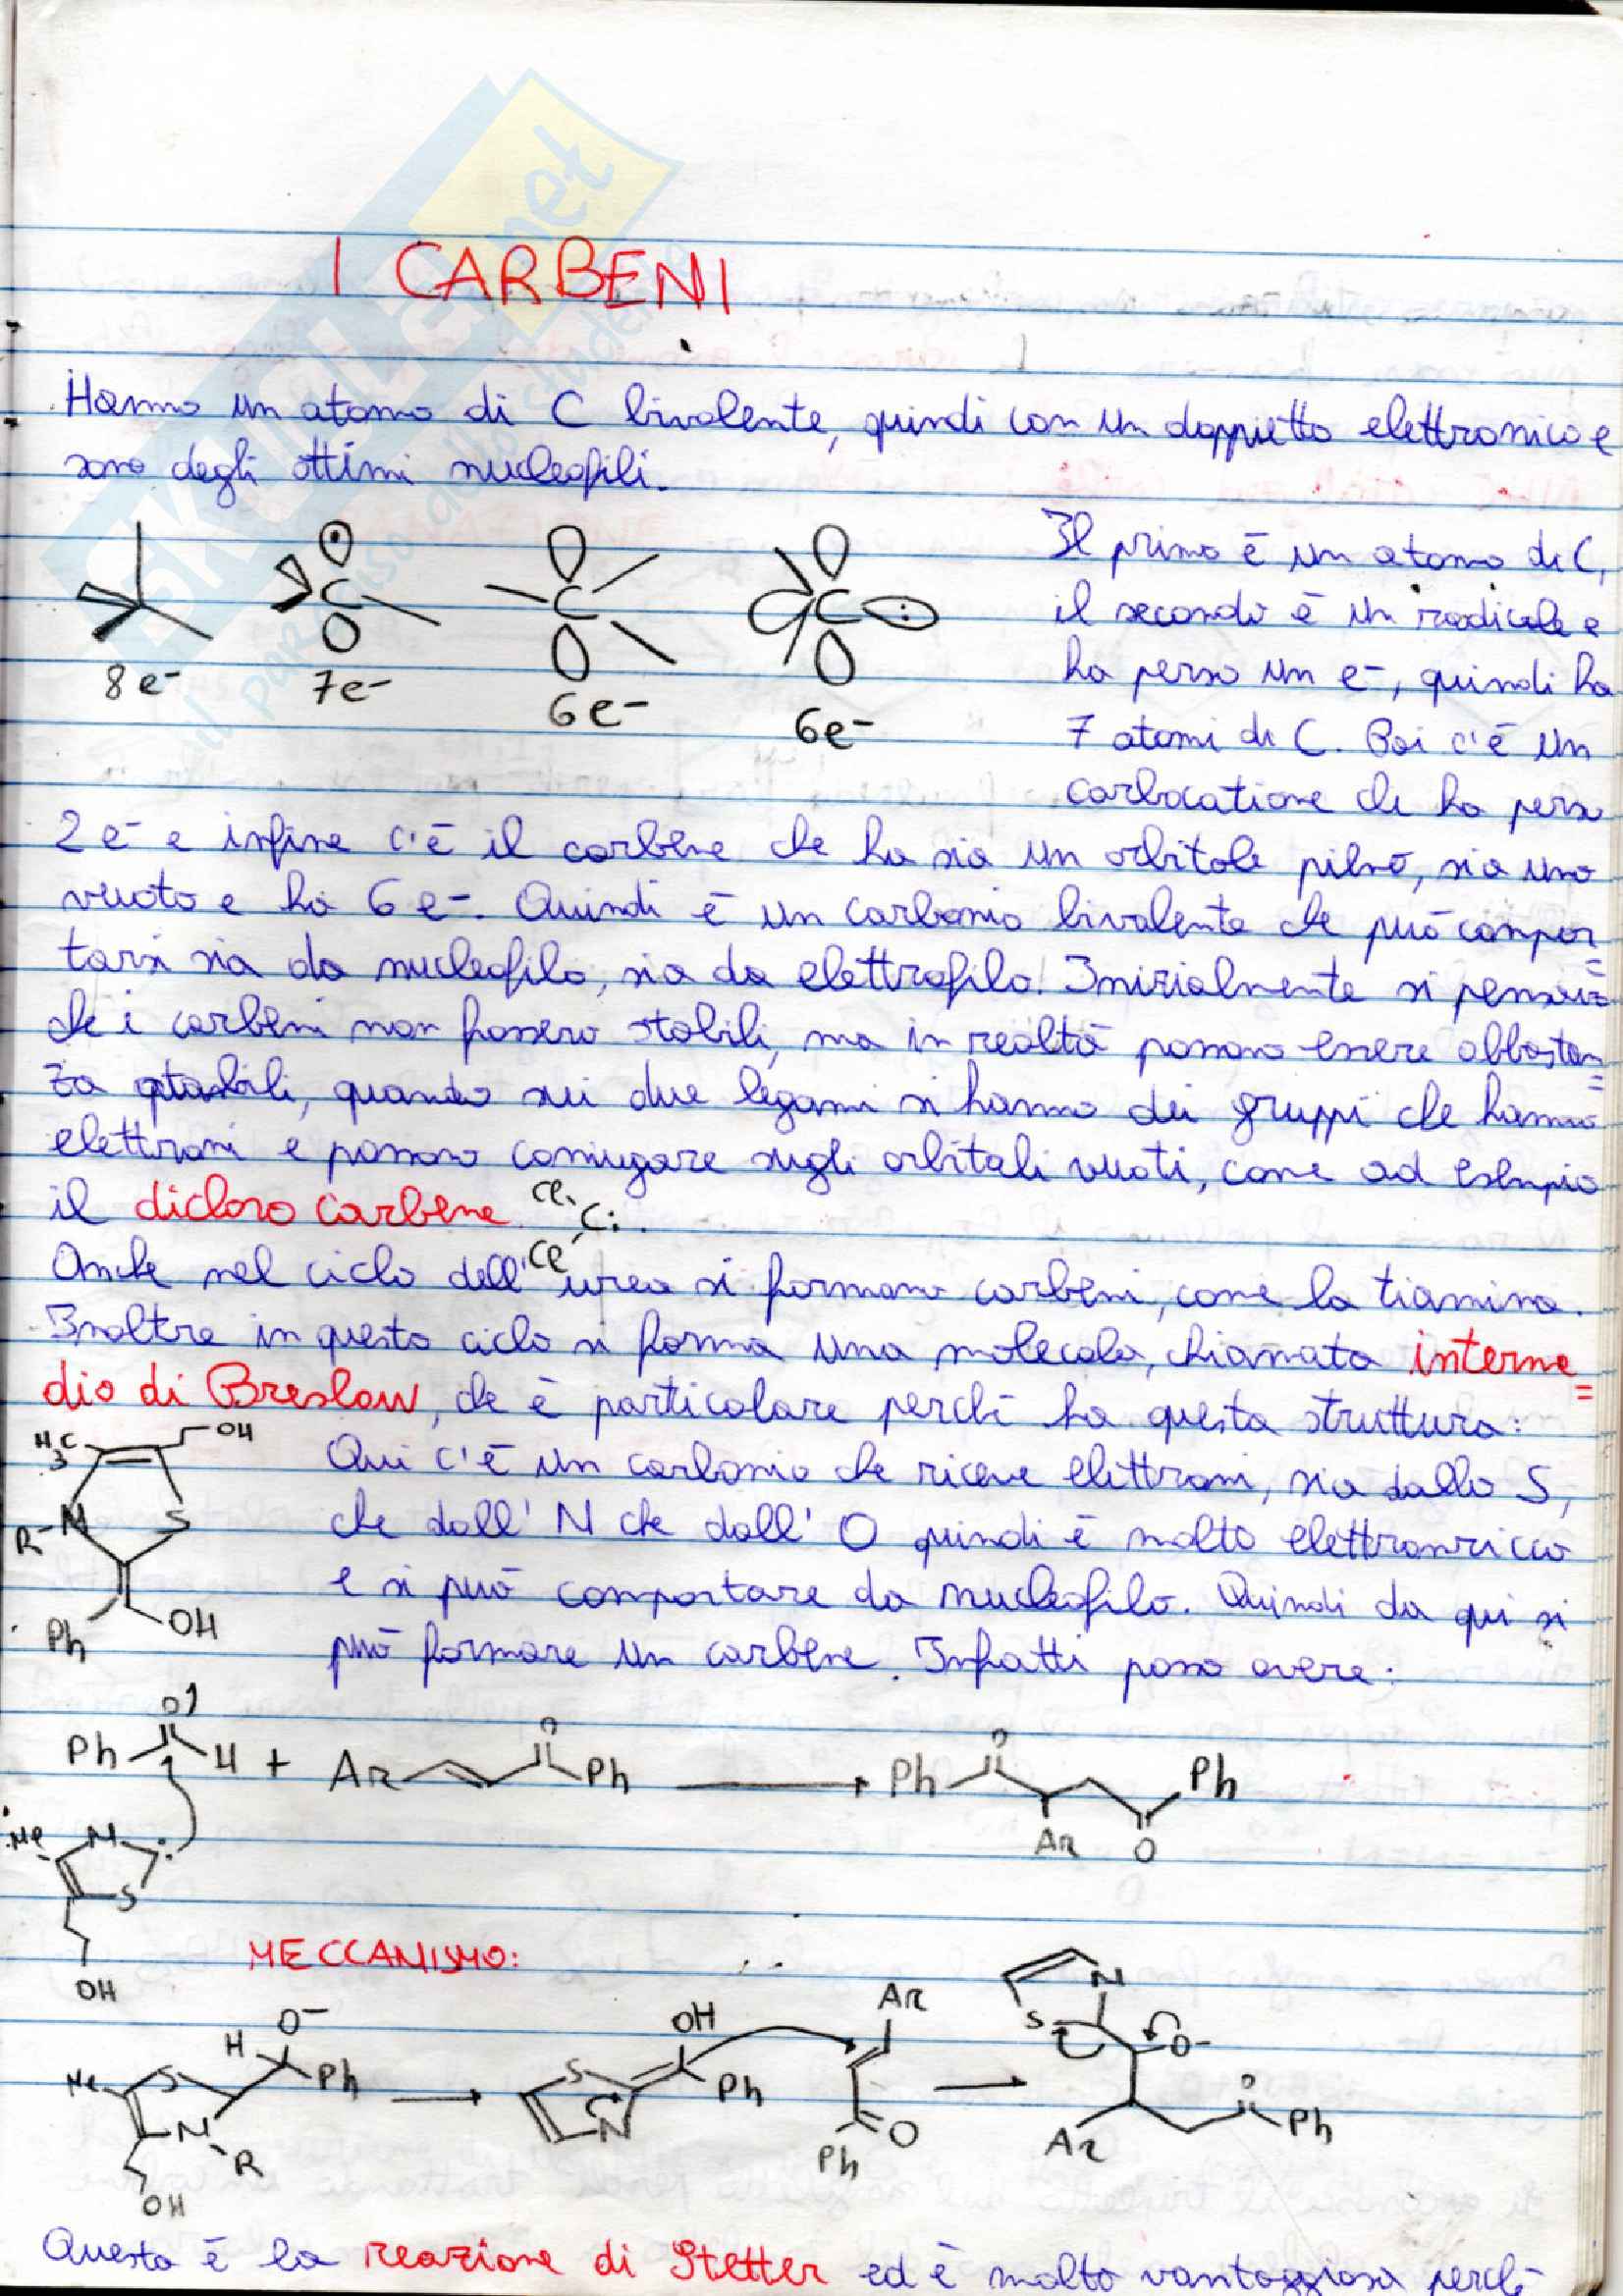 I CARBENI
Hanno un atomo di C bivalente, quindi con un doppietto elettronico e
sono degli ottimi nucleofili.
8e- 7e- 6e- 6e-
C C C
Il primo è un atomo di C,
il secondo è un radicale e
ha perso un e-, quindi ha
7 atomi di C. Poi c'è un
carbocatione che ha perso
2 e- e infine c'è il carbene che ha sia un orbitale pieno, sia uno
vuoto e ha 6 e-. Quindi è un carbonio bivalente che può compor
tarsi sia da nucleofilo, sia da elettrofilo. Inizialmente si pensava
che i carbeni non fossero stabili, ma in realtà possono essere abbastan=
za stabili, quando sui due legami si hanno dei gruppi che hanno
elettroni e possono coniugare sugli orbitali vuoti, come ad esempio
il dicloro carbene. Cl Cl C: .
Anche nel ciclo dell'urea si formano carbeni, come la tiamina.
Inoltre in questo ciclo si forma una molecola, chiamata interme=
dio di Breslow, che è particolare perchè ha questa struttura:
H3C OH
R-N S
Ph OH
Qui c'è un carbonio che riceve elettroni, sia dallo S,
che dall' N che dall' O quindi è molto elettronricco
e si può comportare da nucleofilo. Quindi da qui si
può formare un carbene. Infatti posso avere:
O O O
Ph H + Ar Ph Ph Ph
Ar O
Me N : S
OH
MECCANISMO:
H O- Ph Me S N R OH
OH S N Ph Ar Ph O
N S O- Ar O Ph
Questa è la reazione di Stetter ed è molto vantaggiosa perchè